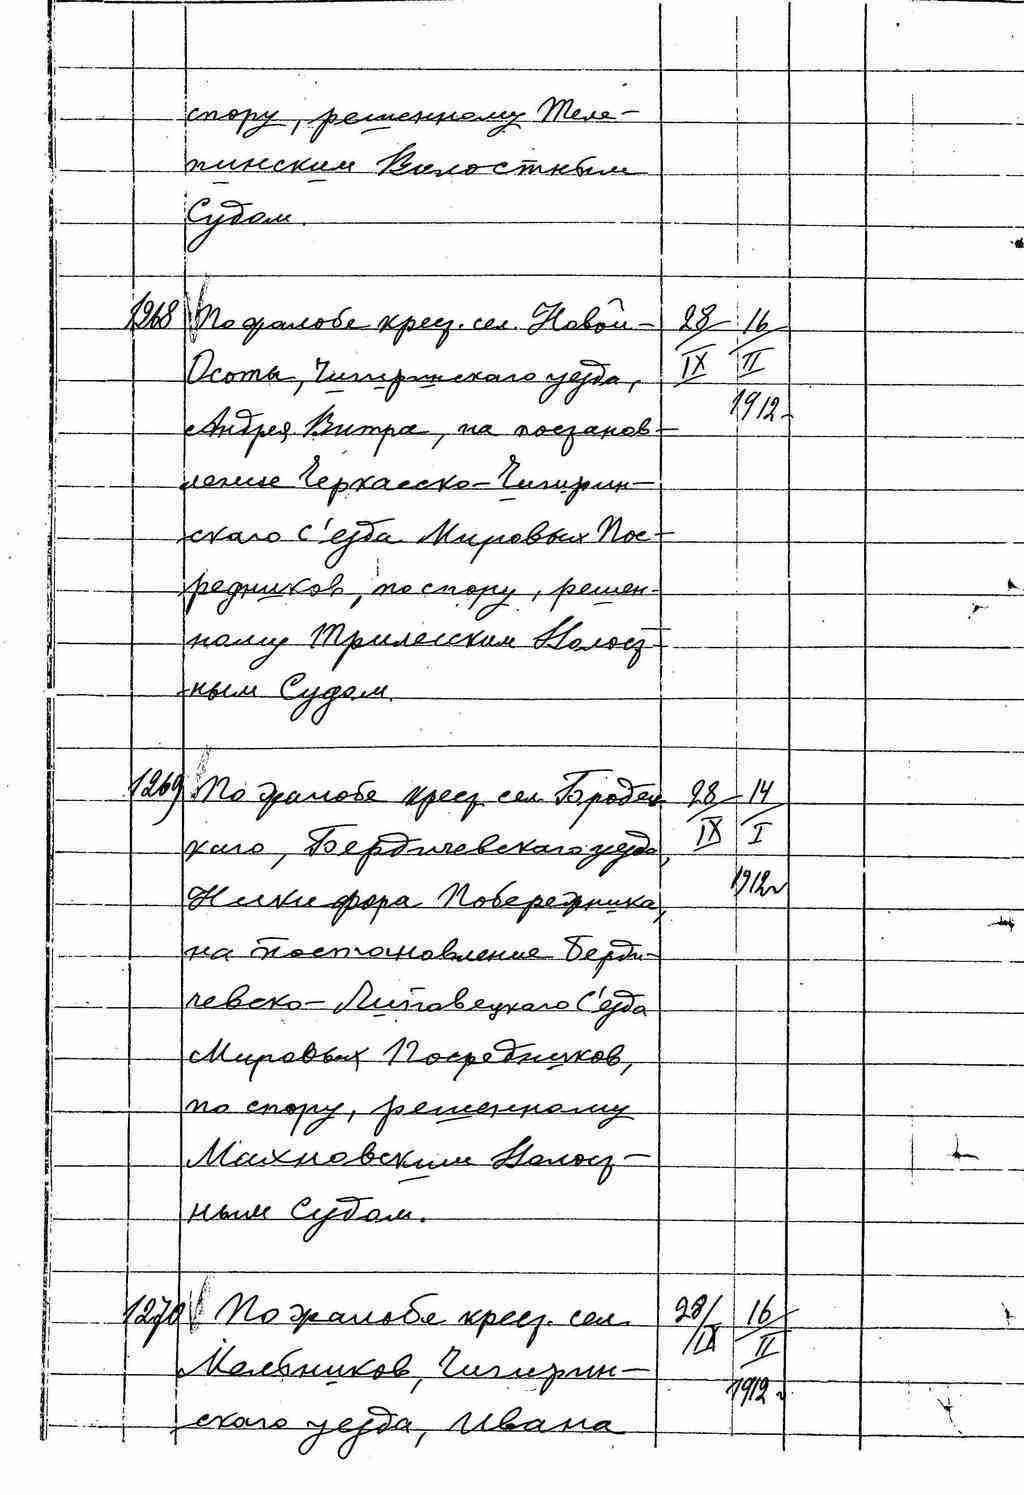 спору, решенному Теле-
пинским Волостным
Судом.
1268 По жалобе крест. сел. Новой- 28/IX 16/II 1912
Осоты, Чигиринскаго уезда,
Андрея Витра, на постанов-
ление Черкасско-Чигирин-
скаго С'езда Мировых Пос-
редников, по спору, решен-
ному Трилесским Волост-
ным Судом.
1269 По жалобе крест. сел. Бродец- 28/IX 14/I 1912
каго, Бердичевскаго уезда,
Никифора Побережника,
на постановление Берди-
чевско-Липовецкаго С'езда
Мировых Посредников,
по спору, решенному
Махновским Волост-
ным Судом.
1270 По жалобе крест. сел. 28/IX 16/II 1912
Мельников, Чигирин-
скаго уезда, Ивана